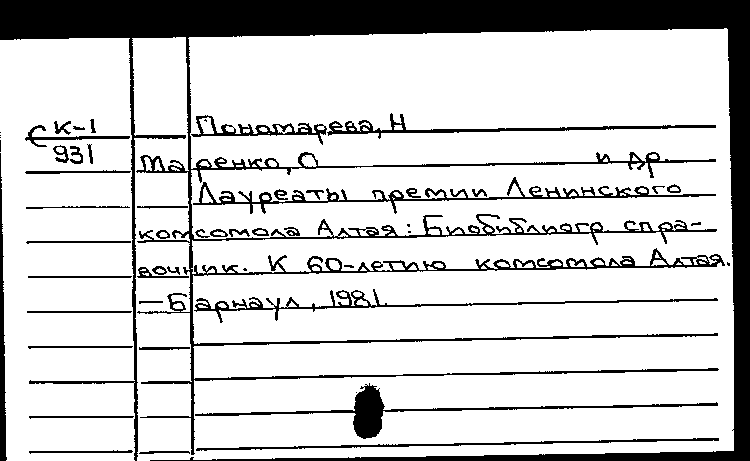 С К-1 Пономарева, Н
931 Таренко, О и др.
Лауреаты премии Ленинского
комсомола Алтая: Биобиблиогр. спра-
вочник. К 60-летию комсомола Алтая.
— Барнаул, 1981.